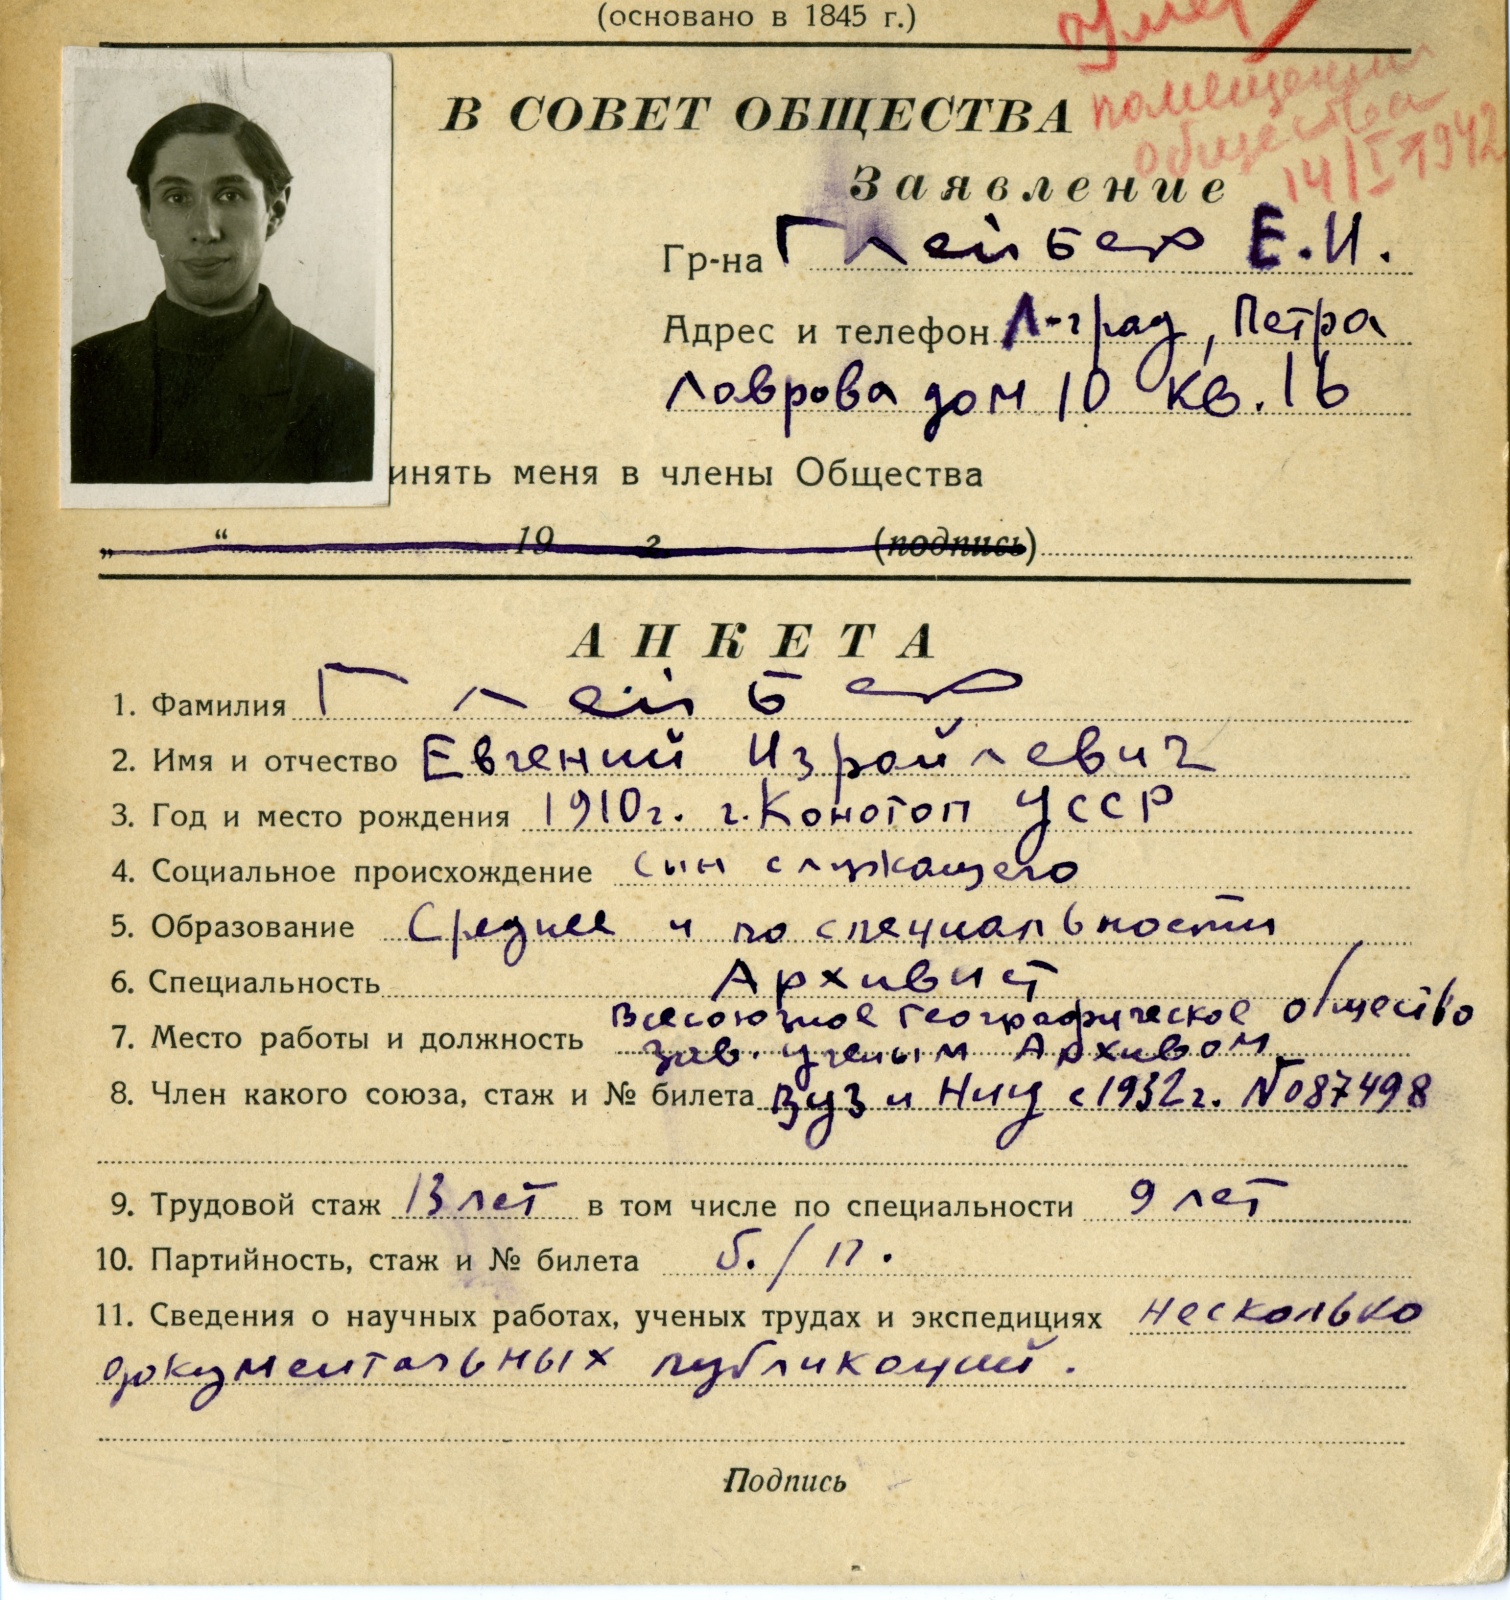 (основано в 1845 г.)
Умер
помещении
общества
14/I 1942
В СОВЕТ ОБЩЕСТВА
Заявление
Гр-на Глейбер Е.И.
Адрес и телефон Л-град, Петра
Лаврова дом 10 кв. 16
инять меня в члены Общества
„ “ 19 г (подпись)
АНКЕТА
1. Фамилия Глейбер
2. Имя и отчество Евгений Израйлевич
3. Год и место рождения 1910г. г. Конотоп УССР
4. Социальное происхождение сын служащего
5. Образование Среднее и по специальности
6. Специальность Архивист
7. Место работы и должность Всесоюзное Географическое общество
зав. ученым Архивом
8. Член какого союза, стаж и № билета ВУЗ и НИУ с 1932г. №087498
9. Трудовой стаж 13 лет в том числе по специальности 9 лет
10. Партийность, стаж и № билета б./п.
11. Сведения о научных работах, ученых трудах и экспедициях несколько
документальных публикаций.
Подпись